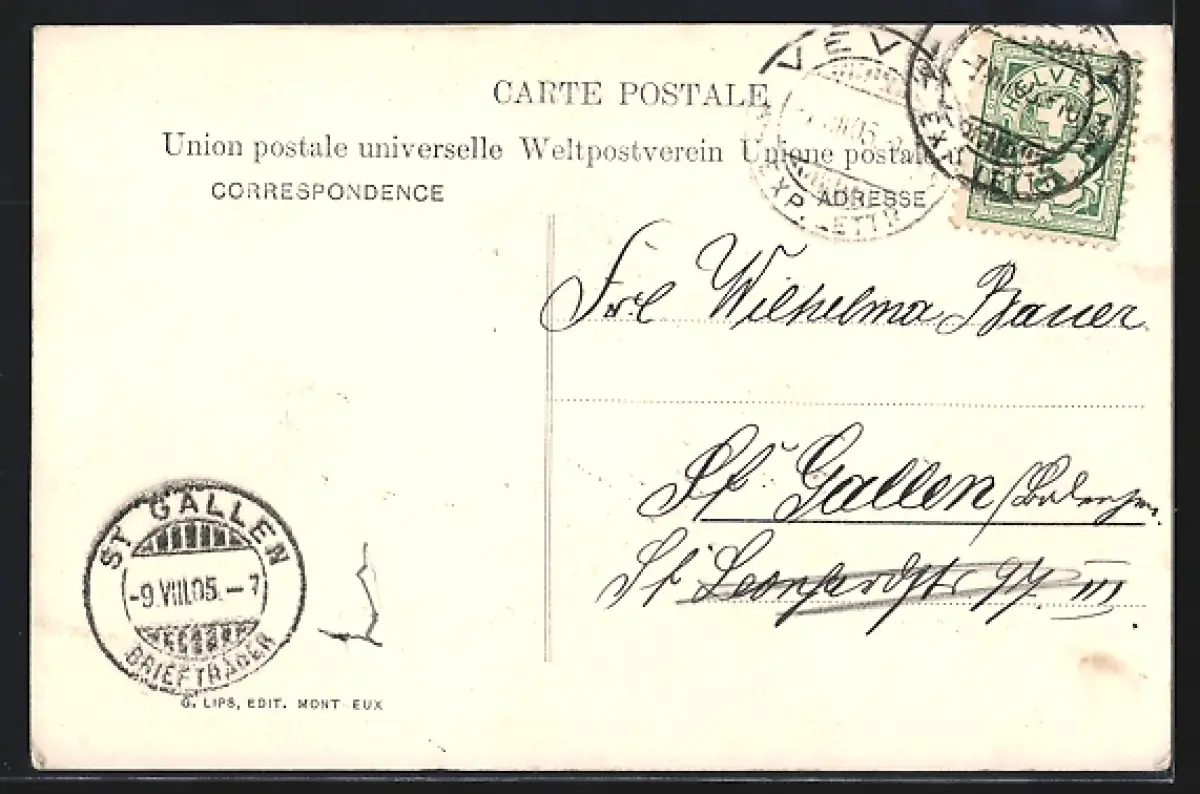 CARTE POSTALE
Union postale universelle Weltpostverein Unione postale u
CORRESPONDENCE
ADRESSE
VEV
EXP. LETTR
HELVETIA
EXP. LETTR
Frl Wilhelma Bauer
St Gallen
St Leonhardstr 97 III.
ST GALLEN
-9.VIII.05.-7
BRIEFTRÄGER
G. LIPS, EDIT. MONT EUX